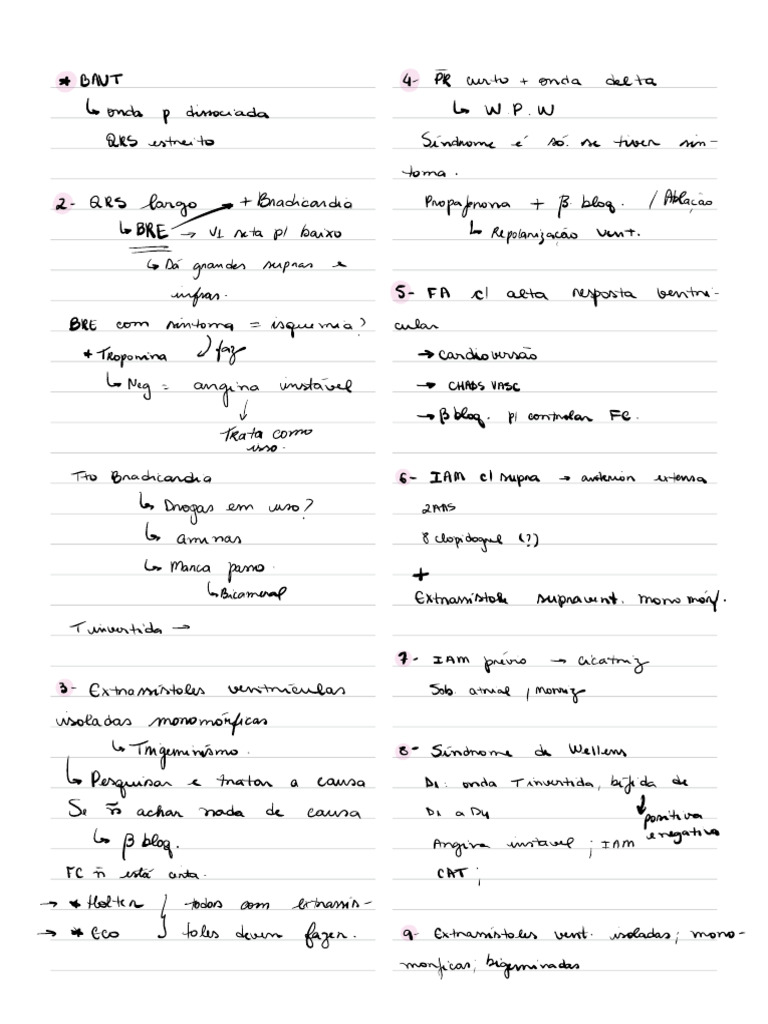 * BAVT
↳ onda p dissociada
QRS estreito
2- QRS largo → + Bradicardia
↳ BRE → V1 seta p/ baixo
↳ Dá grandes supras e
infras.
BRE com sintoma = isquemia?
* Troponina faz
↳ Neg = angina instável
↓
Trata como
isso.
Tto Bradicardia
↳ Drogas em uso?
↳ aminas
↳ Marca passo.
↳ Bicameral
T invertida →
3- Extrassístoles ventriculares
isoladas monomórficas
↳ Trigeminismo.
↳ Pesquisar e tratar a causa
Se ñ achar nada de causa
↳ β bloq.
FC ñ está certa.
→ * Holter } todos com extrassís-
→ * Eco } toles devem fazer.
4- PR curto + onda delta
↳ W.P.W
Síndrome é só se tiver sin-
toma.
Propafenona + β bloq. / Ablação
↳ Repolarização vent.
5- FA c/ alta resposta ventri-
cular
→ Cardioversão
→ CHADS VASC
→ β bloq. p/ controlar FC.
6- IAM c/ supra → anterior extensa
2AAS
8 clopidogrel (?)
+
Extrassístole supravent. monomórf.
7- IAM prévio → cicatriz
Sob. atrial,
8- Síndrome de Wellens
D1: onda T invertida, bifida de
D1 a D4 ↓ positiva
e negativa
Angina instável ; IAM
CAT ;
9- Extrassístoles vent. isoladas; mono-
mórficas; bigeminadas